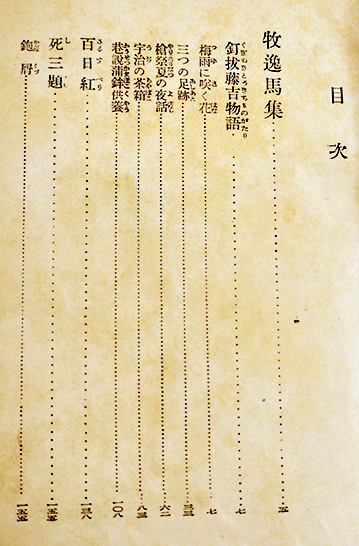 目次
牧逸馬集……五
釘抜藤吉物語……七
梅雨に咲く花……七
三つの足跡……三三
槍祭夏の夜話……六二
宇治の茶箱……八三
巷説蒲鉾供養……一〇八
百日紅……一三八
死三題……一五五
鉋屑……一五五